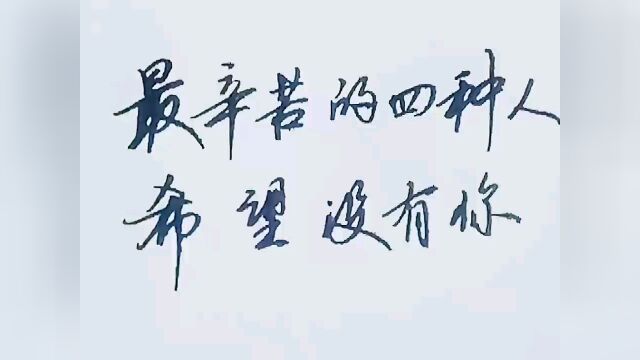 最辛苦的四种人
希望没有你